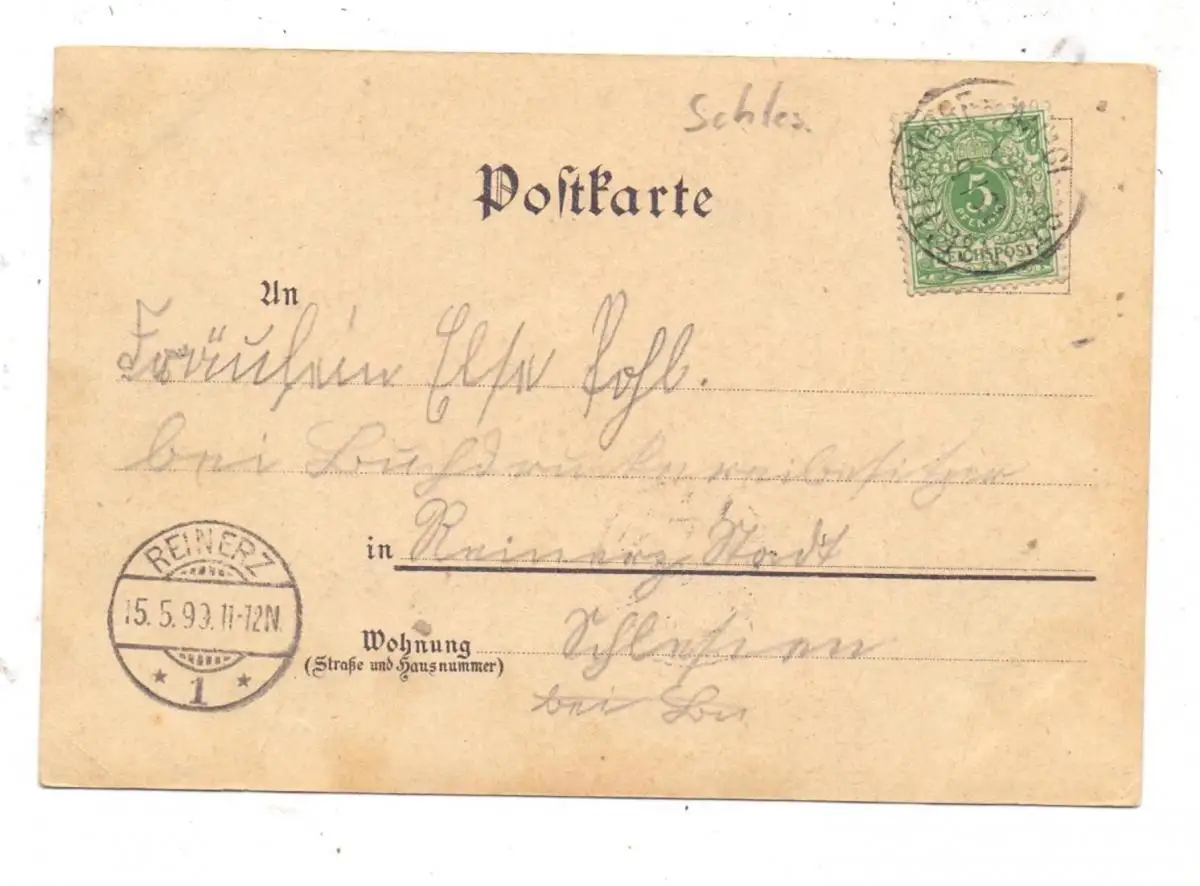 Schles.
Poſtkarte
5
PFENNIG
REICHSPOST
An
Fräulein Else Pohl.
bei Buchdruckereibesitzer
in Reinerz Stadt
REINERZ
15.5.99.11-12N.
* 1 *
Wohnung Schlesien
(Straße und Hausnummer)
bei Bu